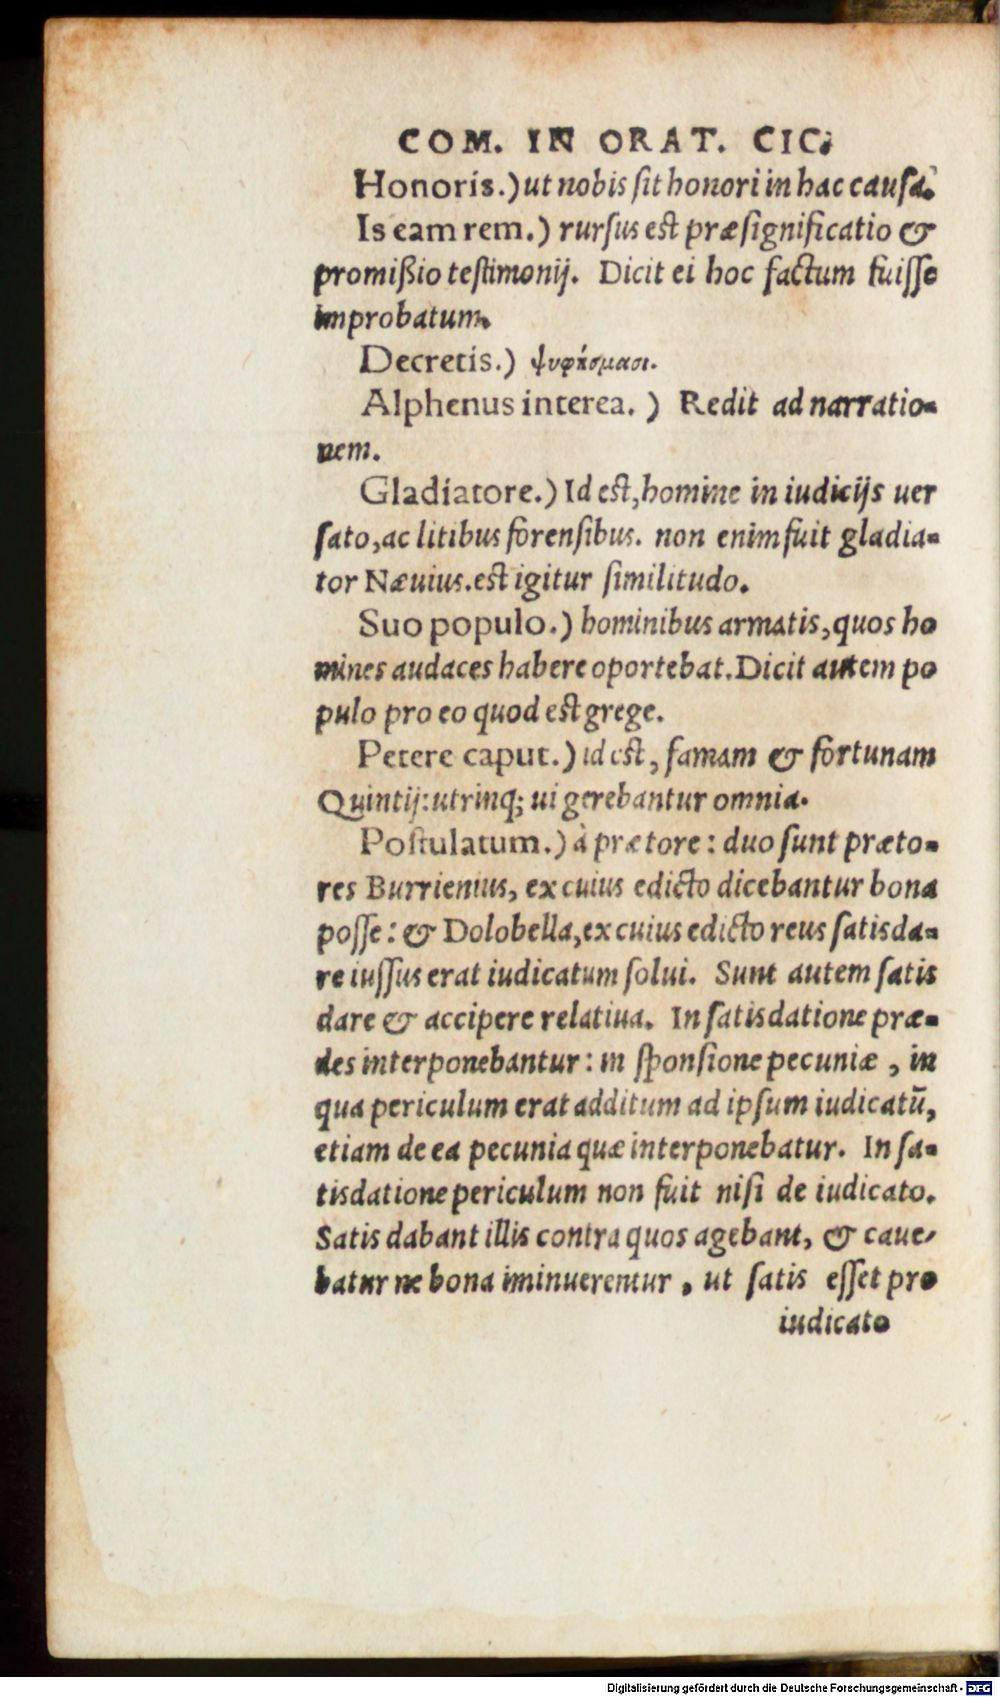 COM. IN ORAT. CIC.
Honoris.) ut nobis ſit honori in hac cauſa.
Is eam rem.) rurſus est præſignificatio &
promißio teſtimonij. Dicit ei hoc factum fuiſſe
improbatum.
Decretis.) ψυφίσμασι.
Alphenus interea.) Redit ad narratio-
nem.
Gladiatore.) Id est, homine in iudicijs uer
ſato, ac litibus forenſibus. non enim fuit gladia-
tor Næuius. est igitur ſimilitudo.
Suo populo.) hominibus armatis, quos ho
mines audaces habere oportebat. Dicit autem po
pulo pro eo quod est grege.
Petere caput.) id est, famam & fortunam
Quintij: utrinq; ui gerebantur omnia.
Poſtulatum.) à prætore: duo ſunt præto-
res Burrienius, ex cuius edicto dicebantur bona
poſſe: & Dolobella, ex cuius edicto reus ſatisda-
re iuſſus erat iudicatum ſolui. Sunt autem ſatis
dare & accipere relatiua. In ſatisdatione præ-
des interponebantur: in ſponſione pecuniæ, in
qua periculum erat additum ad ipſum iudicatū,
etiam de ea pecunia quæ interponebatur. In ſa-
tisdatione periculum non fuit niſi de iudicato.
Satis dabant illis contra quos agebant, & caue-
batur ne bona iminuerentur, ut ſatis eſſet pro
iudicato
Digitalisierung gefördert durch die Deutsche Forschungsgemeinschaft - DFG